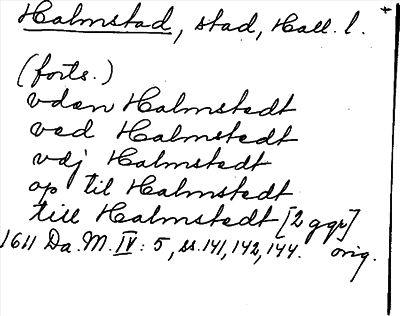 Halmstad, stad, Hall. l. +
(forts.)
vdan Halmstedt
ved Halmstedt
vdj Halmstedt
op til Halmstedt
till Halmstedt [2 ggr]
1611 Da. M. IV: 5, ss. 141, 142, 144. orig.